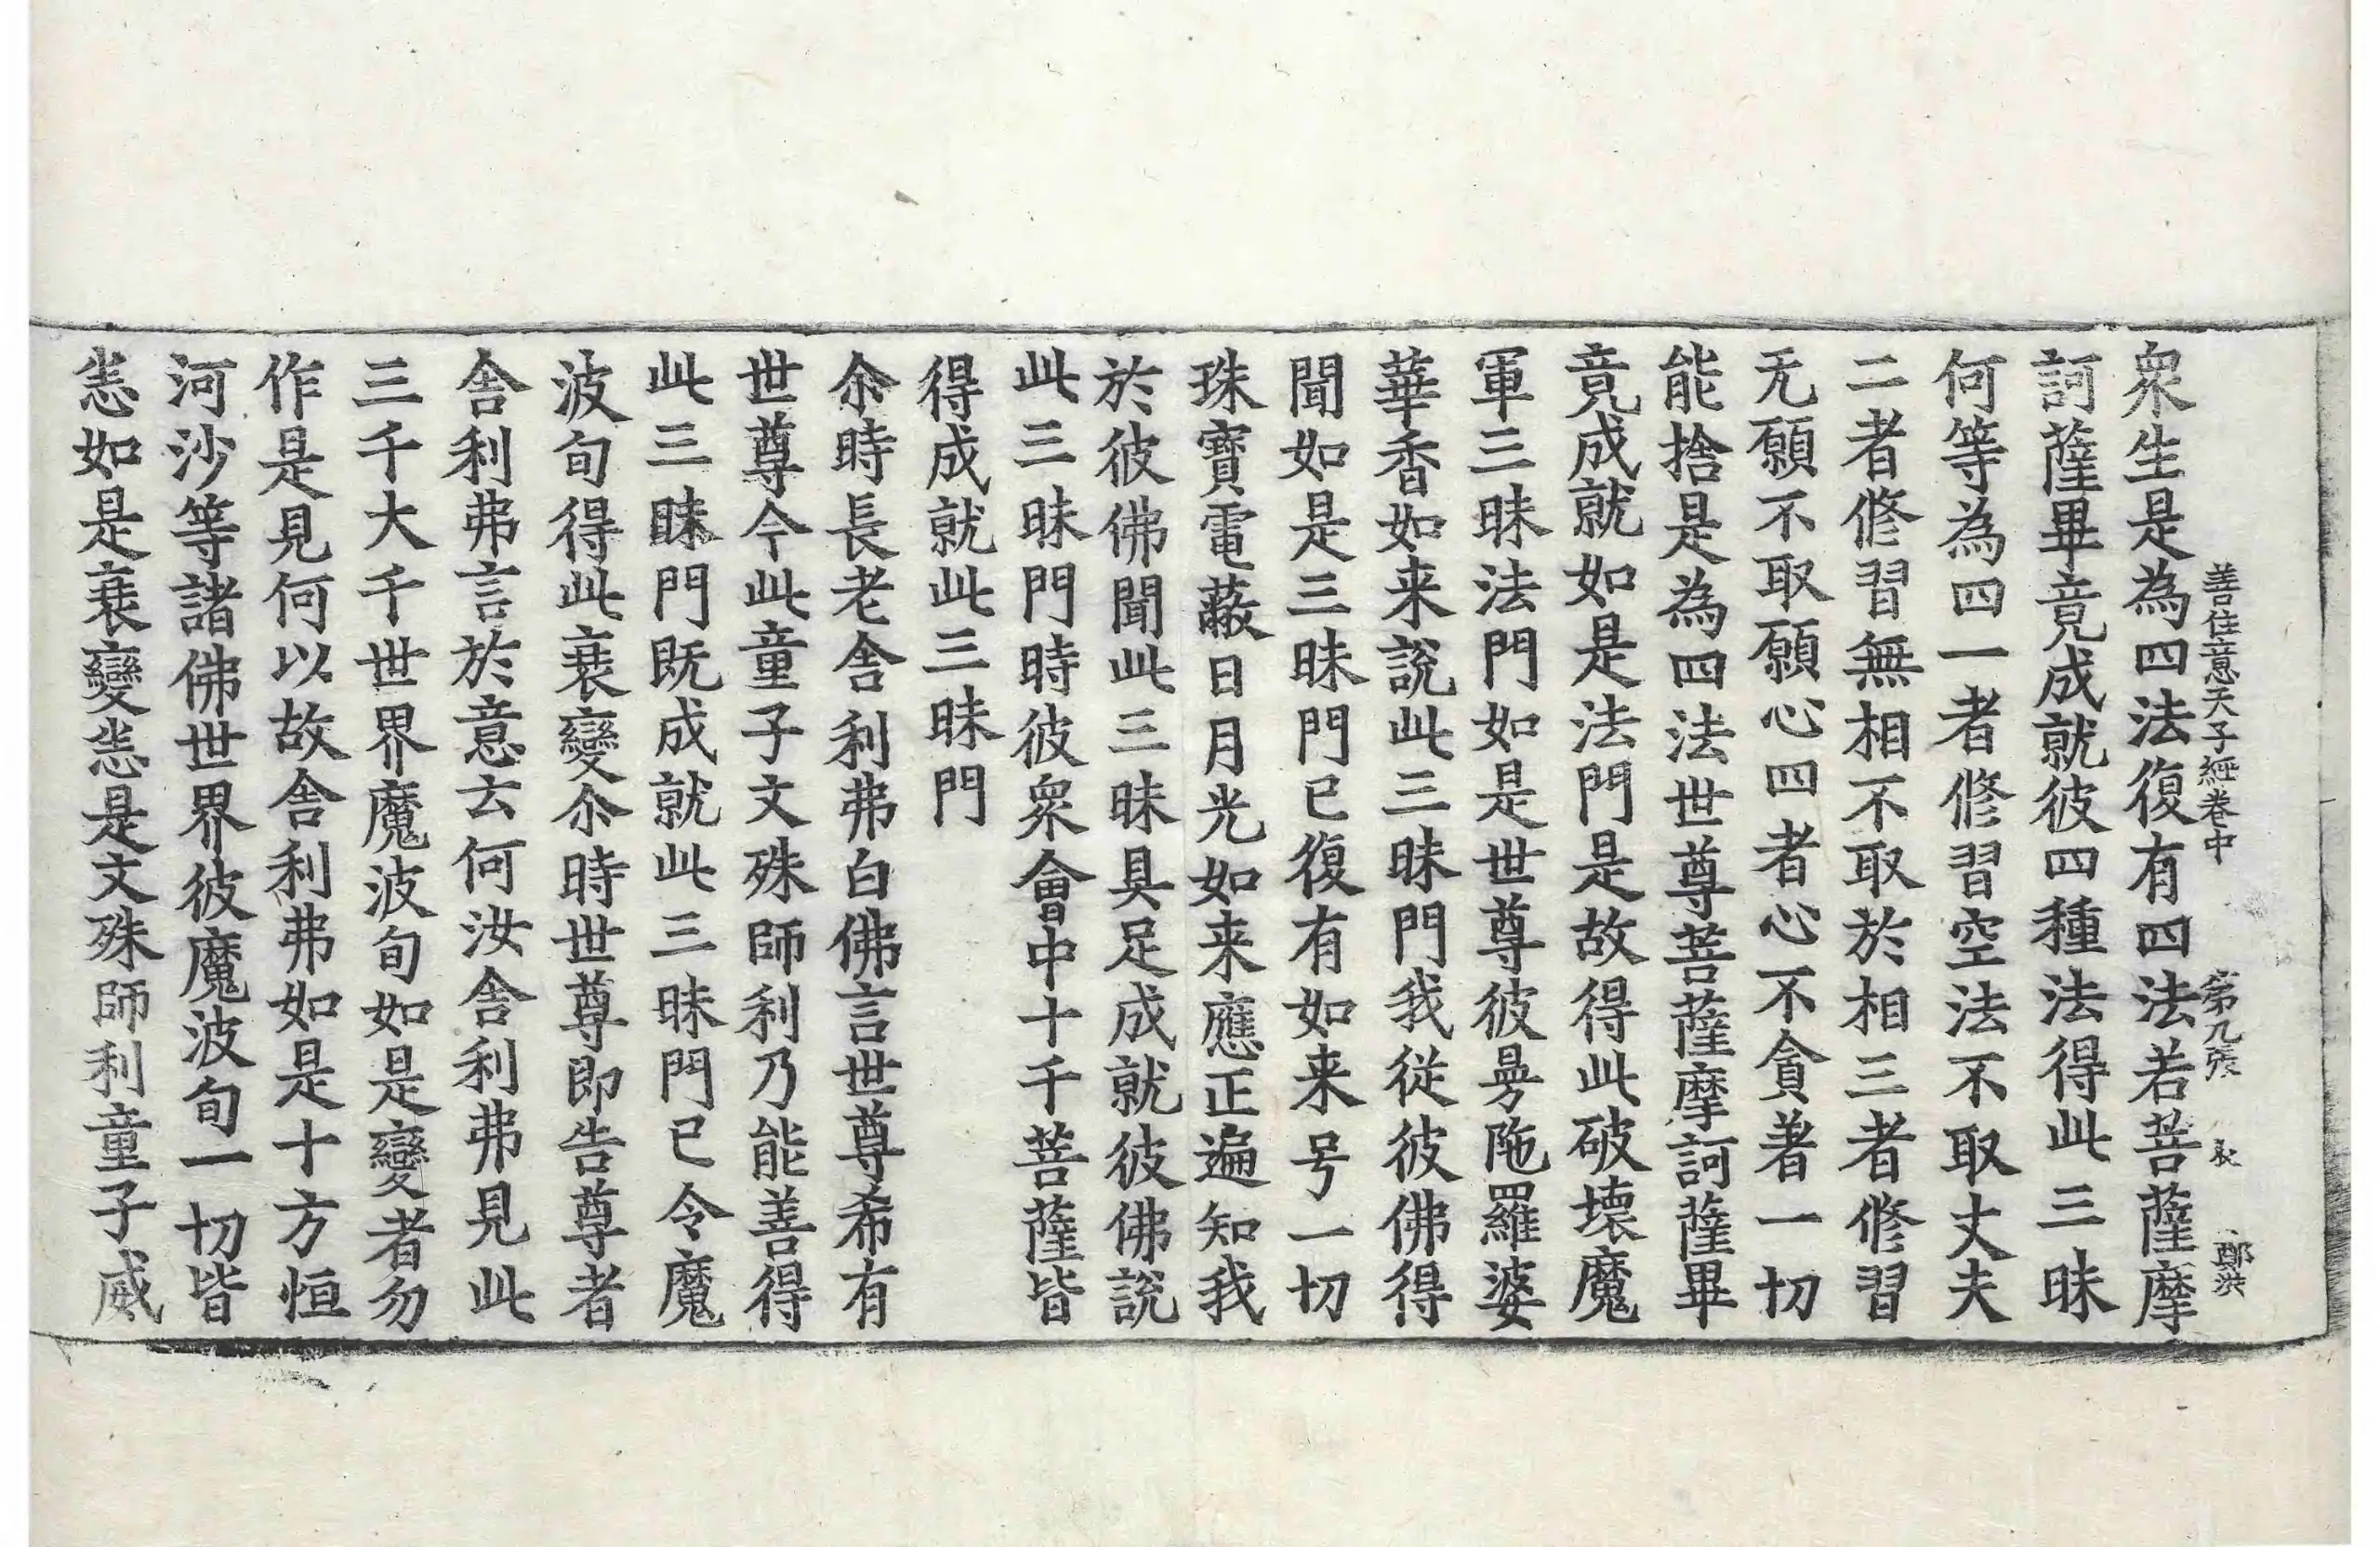 善住意天子經卷中 第九張 鄭洪
衆生是為四法復有四法若菩薩摩
訶薩畢竟成就彼四種法得此三昧
何等為四一者修習空法不取丈夫
二者修習無相不取於相三者修習
无願不取願心四者心不貪著一切
能捨是為四法世尊菩薩摩訶薩畢
竟成就如是法門是故得此破壞魔
軍三昧法門如是世尊彼曼陁羅婆
華香如来說此三昧門我從彼佛得
聞如是三昧門已復有如来号一切
珠寶電蔽日月光如来應正遍知我
於彼佛聞此三昧具足成就彼佛說
此三昧門時彼衆會中十千菩薩皆
得成就此三昧門
尒時長老舍利弗白佛言世尊希有
世尊今此童子文殊師利乃能善得
此三昧門既成就此三昧門已令魔
波旬得此衰變尒時世尊即告尊者
舍利弗言於意云何汝舍利弗見此
三千大千世界魔波旬如是變者勿
作是見何以故舍利弗如是十方恒
河沙等諸佛世界彼魔波旬一切皆
恙如是衰變恙是文殊師利童子威